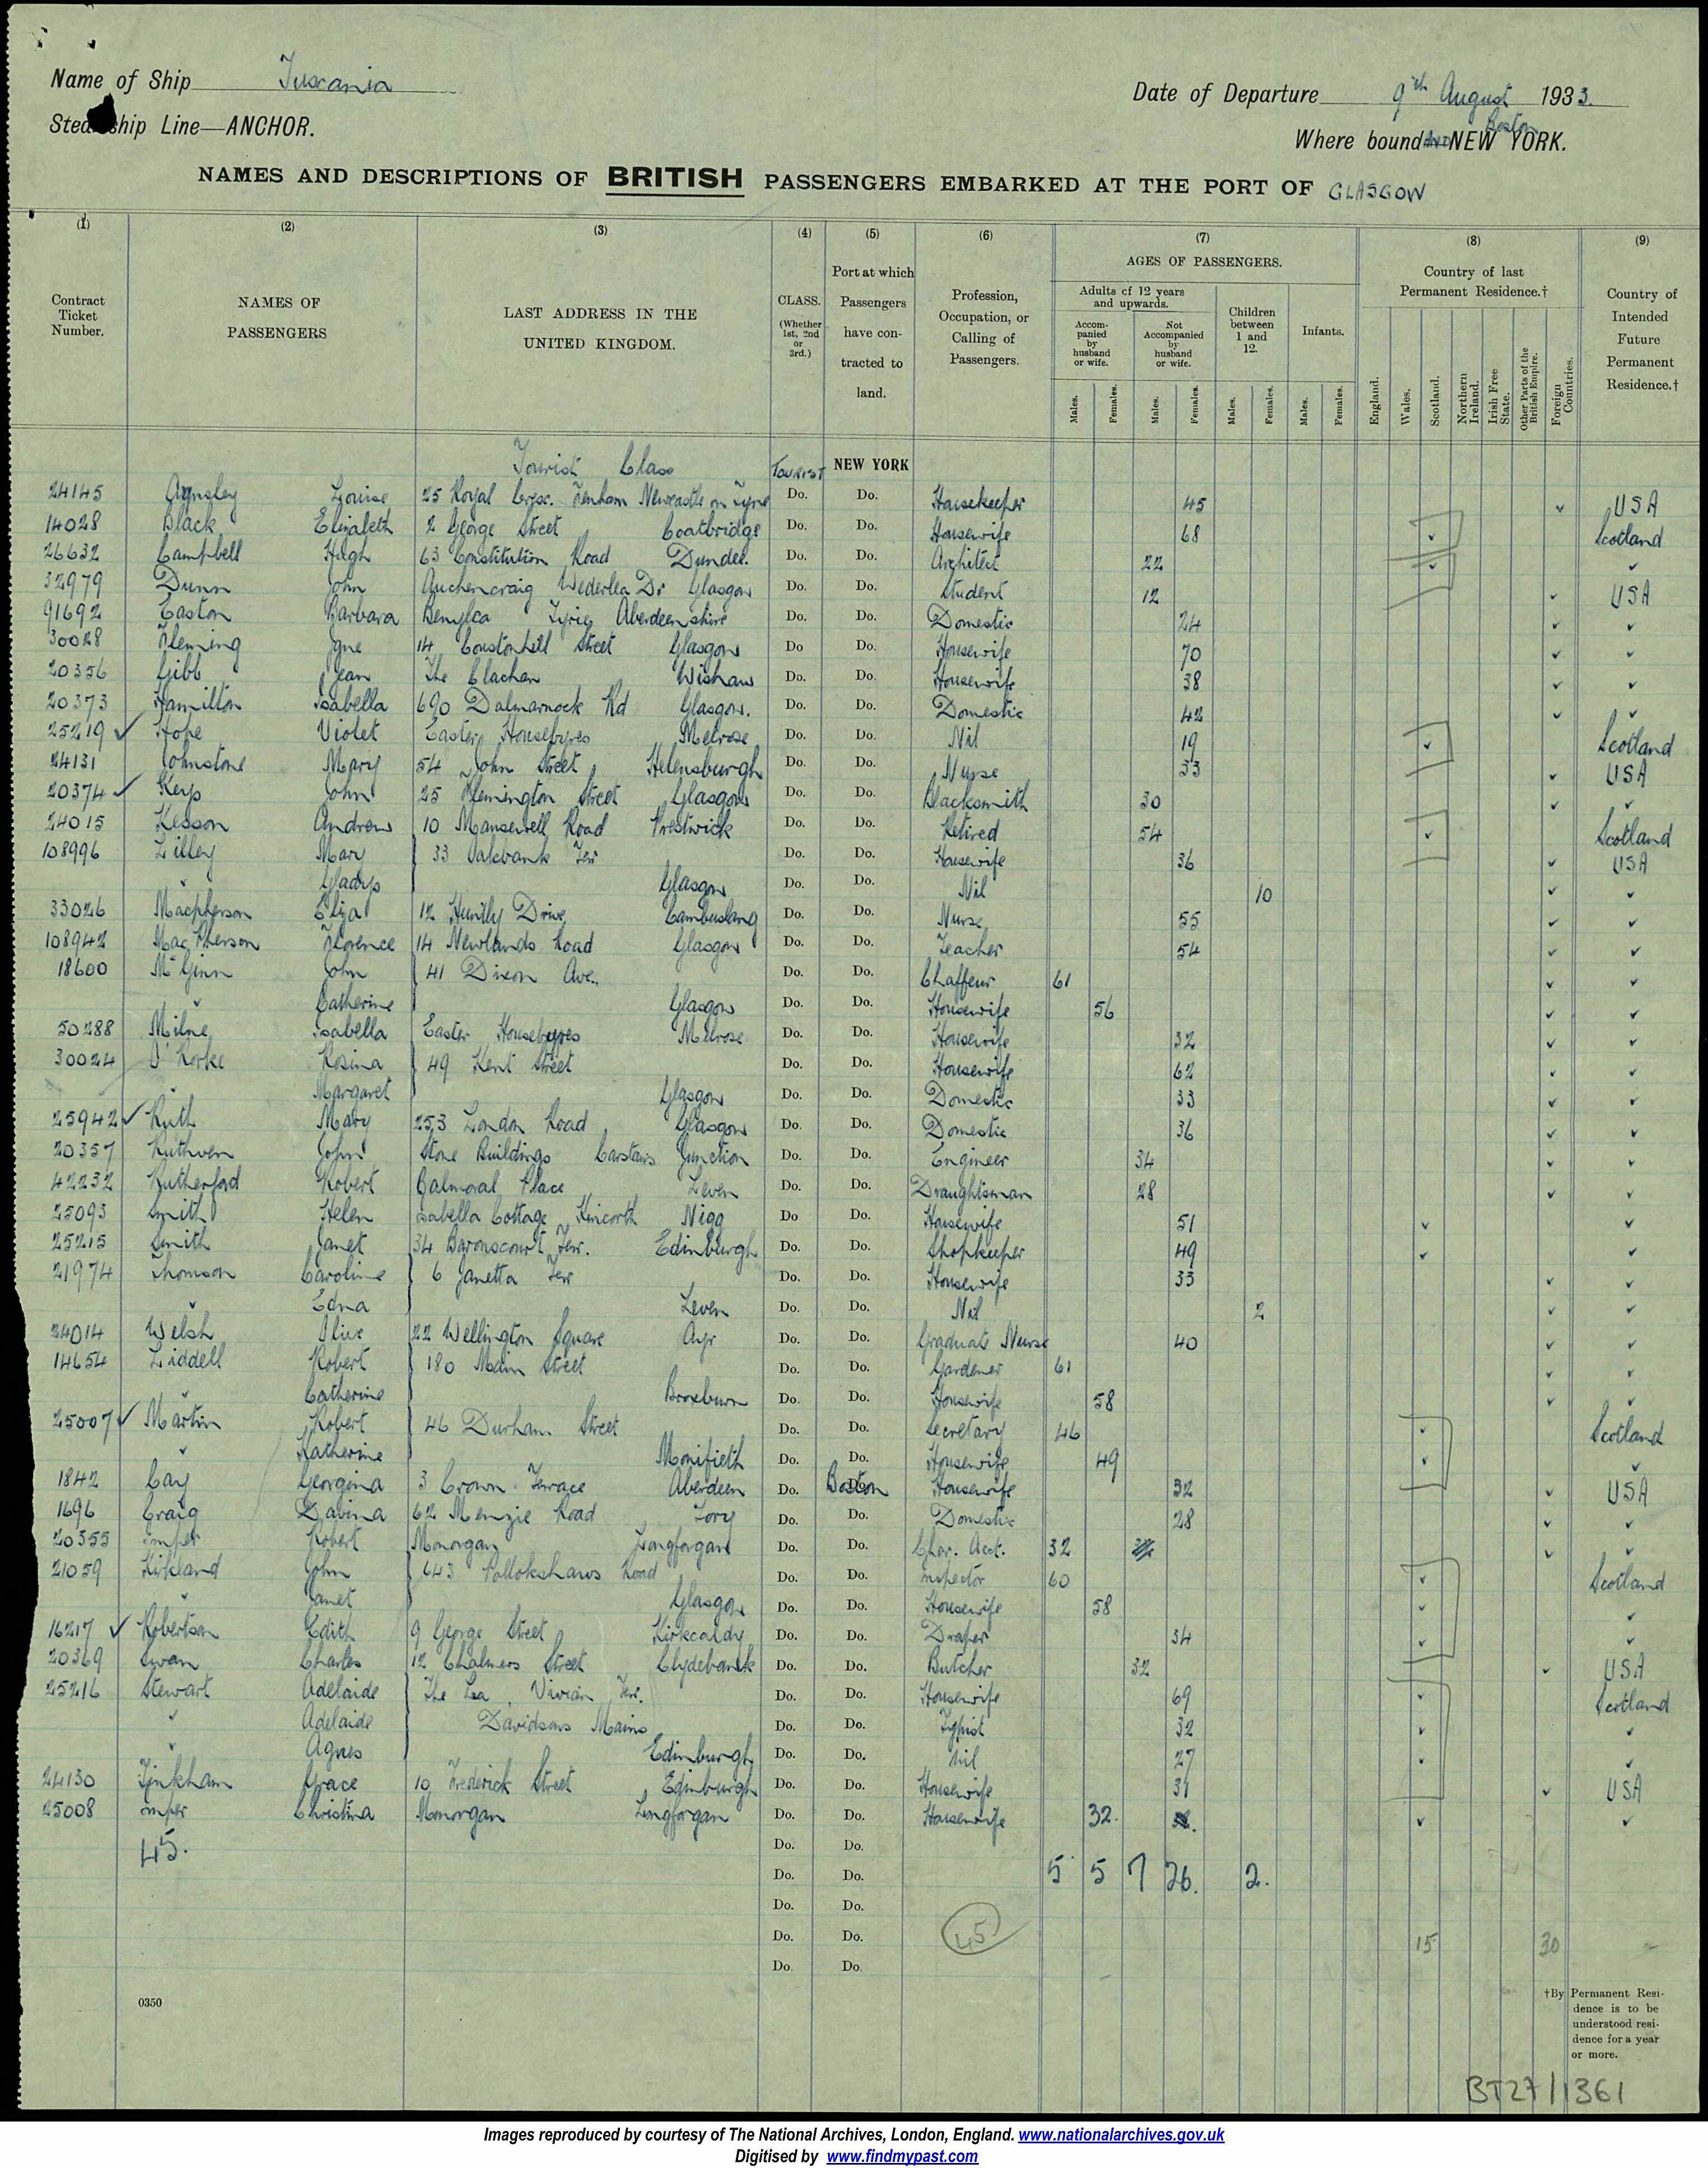 Name of Ship Tuscania
Date of Departure 9th August 1933.
Steamship Line—ANCHOR.
Where bound AND NEW YORK. Boston
NAMES AND DESCRIPTIONS OF BRITISH PASSENGERS EMBARKED AT THE PORT OF GLASGOW
(1) (2) (3) (4) (5) (6) (7) (8) (9)
Contract Ticket Number.
NAMES OF PASSENGERS
LAST ADDRESS IN THE UNITED KINGDOM.
CLASS. (Whether 1st, 2nd or 3rd.)
Port at which Passengers have contracted to land.
Profession, Occupation, or Calling of Passengers.
AGES OF PASSENGERS.
Adults of 12 years and upwards.
Accompanied by husband or wife.
Not Accompanied by husband or wife.
Children between 1 and 12.
Infants.
Males. Females. Males. Females. Males. Females. Males. Females.
Country of last Permanent Residence.†
England. Wales. Scotland. Northern Ireland. Irish Free State. Other Parts of the British Empire. Foreign Countries.
Country of Intended Future Permanent Residence.†
Tourist Class TOURIST NEW YORK
24145 Louise 25 Royal Cresc. Fenham Newcastle on Tyne Do. Do. Housekeeper 45 ✓ USA
14028 Black Elizabeth 2 George Street Coatbridge Do. Do. Housewife 68 ✓ Scotland
26632 Campbell Hugh 63 Constitution Road Dundee. Do. Do. Architect 22 ✓ ✓
32979 Dunn John Auchencraig Dr Glasgow Do. Do. Student 12 ✓ USA
91692 Easton Barbara Tyrie Aberdeenshire Do. Do. Domestic 24 ✓ ✓
30028 Fleming Jane 14 Street Glasgow Do Do. Housewife 70 ✓ ✓
20356 Gibb Jean The Clachan Wishaw Do. Do. Housewife 38 ✓ ✓
20373 Hamilton Isabella 690 Dalmarnock Rd Glasgow. Do. Do. Domestic 42 ✓ ✓
25219 ✓ Hope Violet Easter Housebyres Melrose Do. Do. Nil 19 ✓ Scotland
24131 Johnstone Mary 54 John Street Helensburgh Do. Do. Nurse 33 ✓ USA
20374 ✓ Keys John 25 Flemington Street Glasgow Do. Do. Blacksmith 30 ✓ ✓
24015 Kesson Andrew 10 Mansewell Road Prestwick Do. Do. Retired 54 ✓ Scotland
108996 Lilley Mary 33 Oakbank Terr Do. Do. Housewife 36 ✓ USA
" Gladys Glasgow Do. Do. Nil 10 ✓ ✓
33026 Macpherson Eliza 12 Huntly Drive Cambuslang Do. Do. Nurse 55 ✓ ✓
108942 MacPherson Florence 14 Newlands Road Glasgow Do. Do. Teacher 54 ✓ ✓
18600 McGinn John 41 Dixon Ave., Do. Do. Chaffeur 61 ✓ ✓
" Catherine Glasgow Do. Do. Housewife 56 ✓ ✓
50288 Milne Isabella Easter Housebyres Melrose Do. Do. Housewife 32 ✓ ✓
30024 O'Rorke Rosina 49 Kent Street Do. Do. Housewife 62 ✓ ✓
" Margaret Glasgow Do. Do. Domestic 33 ✓ ✓
25942 ✓ Ruth Mary 253 London Road Glasgow Do. Do. Domestic 36 ✓ ✓
20357 Ruthven John Stone Buildings Carstairs Junction Do. Do. Engineer 34 ✓ ✓
42232 Rutherford Robert Balmoral Place Leven Do. Do. Draughtsman 28 ✓ ✓
25093 Smith Helen Isabella Cottage Kincorth Nigg Do Do. Housewife 51 ✓ ✓
25215 Smith Janet 34 Baronscourt Terr. Edinburgh Do. Do. Shopkeeper 49 ✓ ✓
21974 Thomson Caroline 6 Janetta Terr Do. Do. Housewife 33 ✓ ✓
" Edna Leven Do. Do. Nil 2 ✓ ✓
24014 Welsh Alice 22 Wellington Square Ayr Do. Do. Graduate Nurse 40 ✓ ✓
14654 Liddell Robert 180 Main Street Do. Do. Gardener 61 ✓ ✓
" Catherine Broxburn Do. Do. Housewife 58 ✓ ✓
25007 ✓ Martin Robert 46 Durham Street Do. Do. Secretary 46 ✓ Scotland
" Katherine Monifieth Do. Do. Housewife 49 ✓ ✓
1842 Cay Georgina 3 Crown Terrace Aberdeen Do. Boston Housewife 32 ✓ USA
1696 Craig Davina 62 Menzie Road Torry Do. Do. Domestic 28 ✓ ✓
20355 Robert Monorgan Longforgan Do. Do. Char. Acct. 32 ✓ ✓
21059 Kirkland John 643 Pollokshaws Road Do. Do. Inspector 60 ✓ Scotland
" Janet Glasgow Do. Do. Housewife 58 ✓ ✓
16217 ✓ Robertson Edith 9 George Street Kirkcaldy Do. Do. Draper 34 ✓ ✓
20369 Swan Charles 12 Chalmers Street Clydebank Do. Do. Butcher 32 ✓ USA
25216 Stewart Adelaide The Lea, Vivian Terr. Do. Do. Housewife 69 ✓ Scotland
" Adelaide Davidsons Mains Do. Do. Typist 32 ✓ ✓
" Agnes Edinburgh Do. Do. Nil 27 ✓ ✓
24130 Tinkham Grace 10 Frederick Street Edinburgh Do. Do. Housewife 31 ✓ USA
25008 Christina Monorgan Longforgan Do. Do. Housewife 32. ✓ ✓
45. Do. Do.
Do. Do. 5 5 7 26. 2.
Do. Do.
Do. Do. 45 15 30
Do. Do.
0350
†By Permanent Residence is to be understood residence for a year or more.
BT27/1361
Images reproduced by courtesy of The National Archives, London, England. www.nationalarchives.gov.uk
Digitised by www.findmypast.com